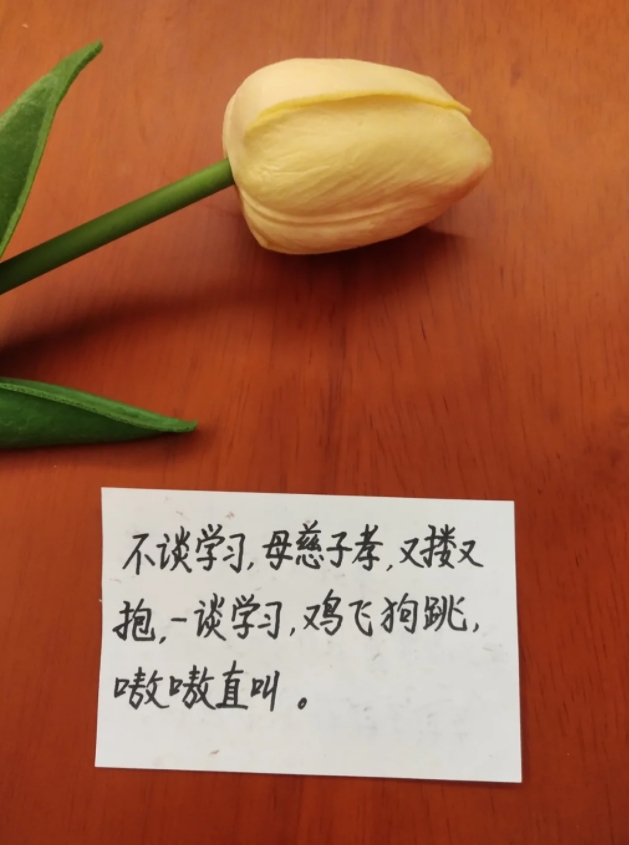 不谈学习,母慈子孝,又搂又
抱,一谈学习,鸡飞狗跳,
嗷嗷直叫。